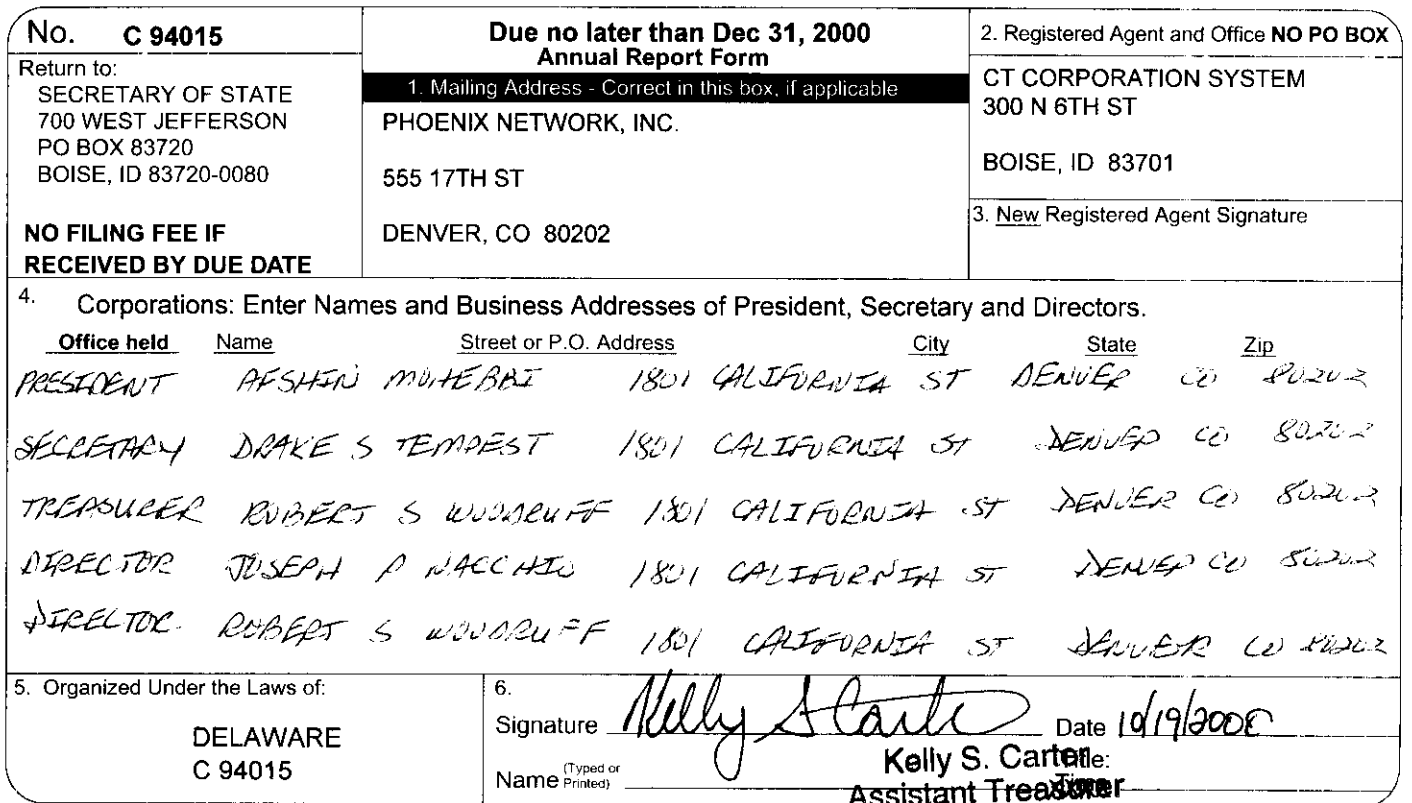 No. C 94015
Return to:
SECRETARY OF STATE
700 WEST JEFFERSON
PO BOX 83720
BOISE, ID 83720-0080
NO FILING FEE IF
RECEIVED BY DUE DATE
Due no later than Dec 31, 2000
Annual Report Form
1. Mailing Address - Correct in this box, if applicable
PHOENIX NETWORK, INC.
555 17TH ST
DENVER, CO 80202
2. Registered Agent and Office NO PO BOX
CT CORPORATION SYSTEM
300 N 6TH ST
BOISE, ID 83701
3. New Registered Agent Signature
4. Corporations: Enter Names and Business Addresses of President, Secretary and Directors.
Office held Name Street or P.O. Address City State Zip
PRESIDENT AFSHIN MOHEBBI 1801 CALIFORNIA ST DENVER CO 80202
SECRETARY DRAKE S TEMPEST 1801 CALIFORNIA ST DENVER CO 80202
TREASURER ROBERT S WOODRUFF 1801 CALIFORNIA ST DENVER CO 80202
DIRECTOR JOSEPH P NACCHIO 1801 CALIFORNIA ST DENVER CO 80202
DIRECTOR ROBERT S WOODRUFF 1801 CALIFORNIA ST DENVER CO 80202
5. Organized Under the Laws of:
DELAWARE
C 94015
6.
Signature Kelly S Carter Date 10/19/2000
Name (Typed or Printed) Kelly S. Carter Title:
Assistant Treasurer